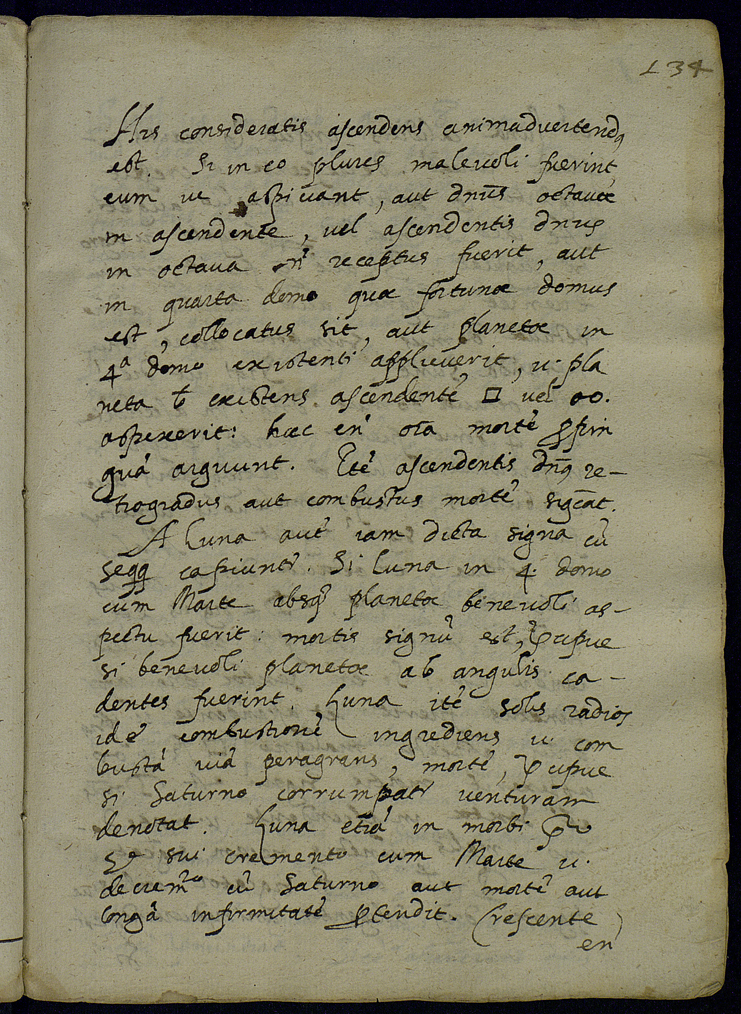 134
His consideratis ascendens animadvertendꝰ
est. Si in eo plures malevoli fuerint
eum ue aspiciant, aut dnūs octavæ
in ascendente, vel ascendentis dnūs
in octava nō receptus fuerit, aut
in quarta domo quæ fortunæ domus
est, collocatus sit, aut planetæ in
4ᵃ domo existenti applicuerit, u. pla
neta ꝉ existens ascendentē □ vel ☍.
aspexerit: hæc en̄ oīa mortē ꝓpin
quā arguunt. Itē ascendentis dn̄ꝰ re-
trogradus aut combustus mortē sigc̄at.
A Luna autē iam dicta signa cū
seqq̄ capiunt᷑. Si Luna in 4. domo
cum Marte absqꝫ planetæ benevoli as-
pectu fuerit: mortis signū est, p̄cipue
si benevoli planetæ ab angulis ca-
dentes fuerint. Luna itē solis radios
idē combustionē ingrediens u. com
bustā viā peragrans, mortē, p̄cipue
si Saturno corrumpat᷑ venturam
denotat. Luna etiā in morbi
sui cremento cum Marte u.
decremᵗᵒ cū Saturno aut mortē aut
longā infirmitatē ꝓtendit. Crescente
en̄